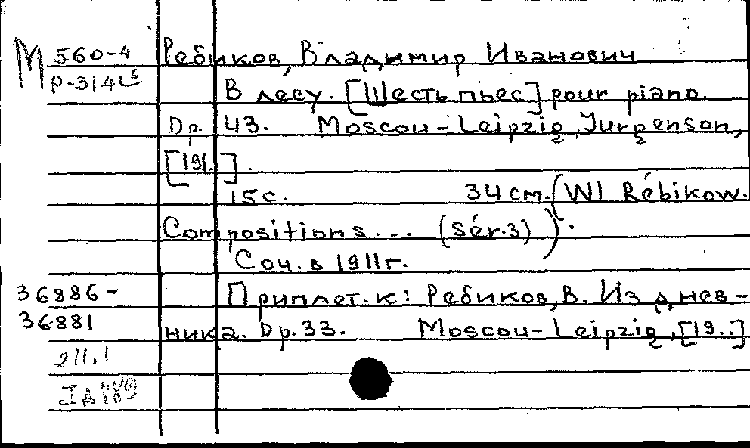 М 560-4 Ребиков, Владимир Иванович
Р-314
В лесу. [Шесть пьес] pour piano.
Op. 43. Moscou-Leipzig, Jurgenson,
[191.].
15с. 34см. (Wl Rébikow.
Compositions... (Sér.3)).
Соч. в 1911г.
36886- Приплет. к: Ребиков, В. Из днев-
36881 ника. Op. 33. Moscou-Leipzig, [19..]